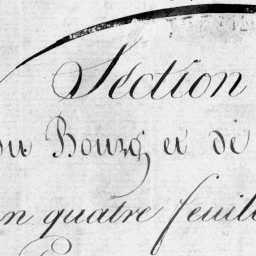 Section
du Bourg et de
en quatre feuill